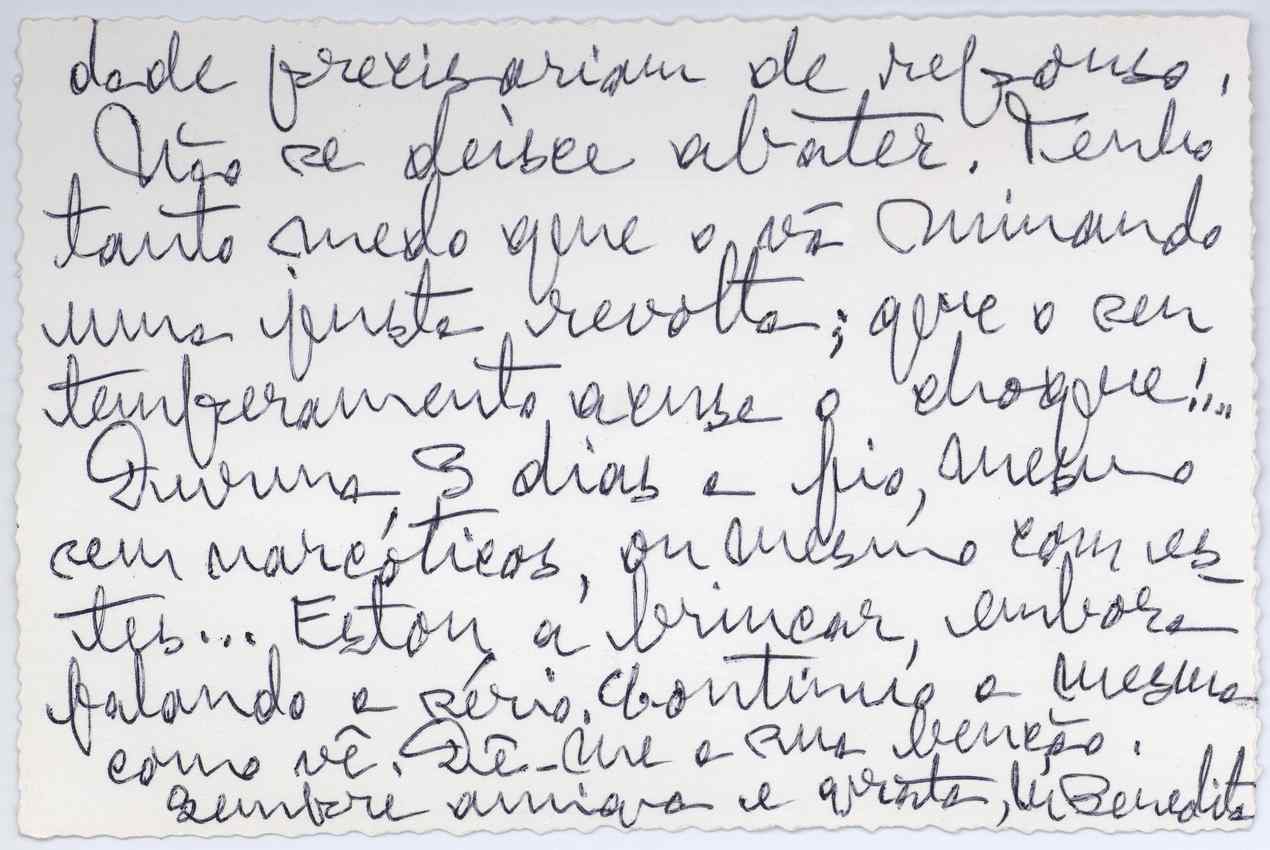 dade precisariam de repouso.
Não se deixe abater. Tenho
tanto medo que o vá minando
uma justa revolta; que o seu
temperamento acuse o choque!...
Durma 3 dias a fio, mesmo
sem narcóticos, ou mesmo com es-
tes... Estou a brincar, embora
falando a sério. Continuo a mesma
como vê. Dê-me a sua benção.
Sempre amiga e grata, M Benedita